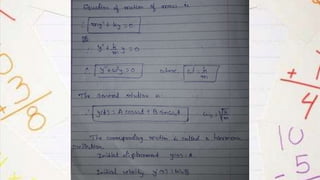 Equation of motion of mass is
∴ my" + ky = 0
∴ y" + k/m y = 0
∴ y" + ω²y = 0 where,
The General solution is
∴ y(t) = A cos ωt + B sin ωt
The corresponding motion is called a harmonic
oscillation.
Initial displacement y(0) = A
Initial velocity
+ 1
4
3/8
10
- 5